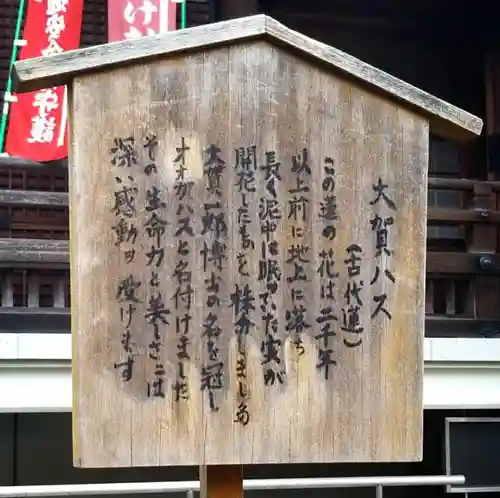 大賀ハス
(古代蓮)
この蓮の花は二千年
以上前に地上に落ち
長く泥中に眠っていた実が
開花したものを株分しました
大賀一郎博士の名を冠し
オオガハスと名付けました
その生命力と美しさには
深い感動を受けます
守護